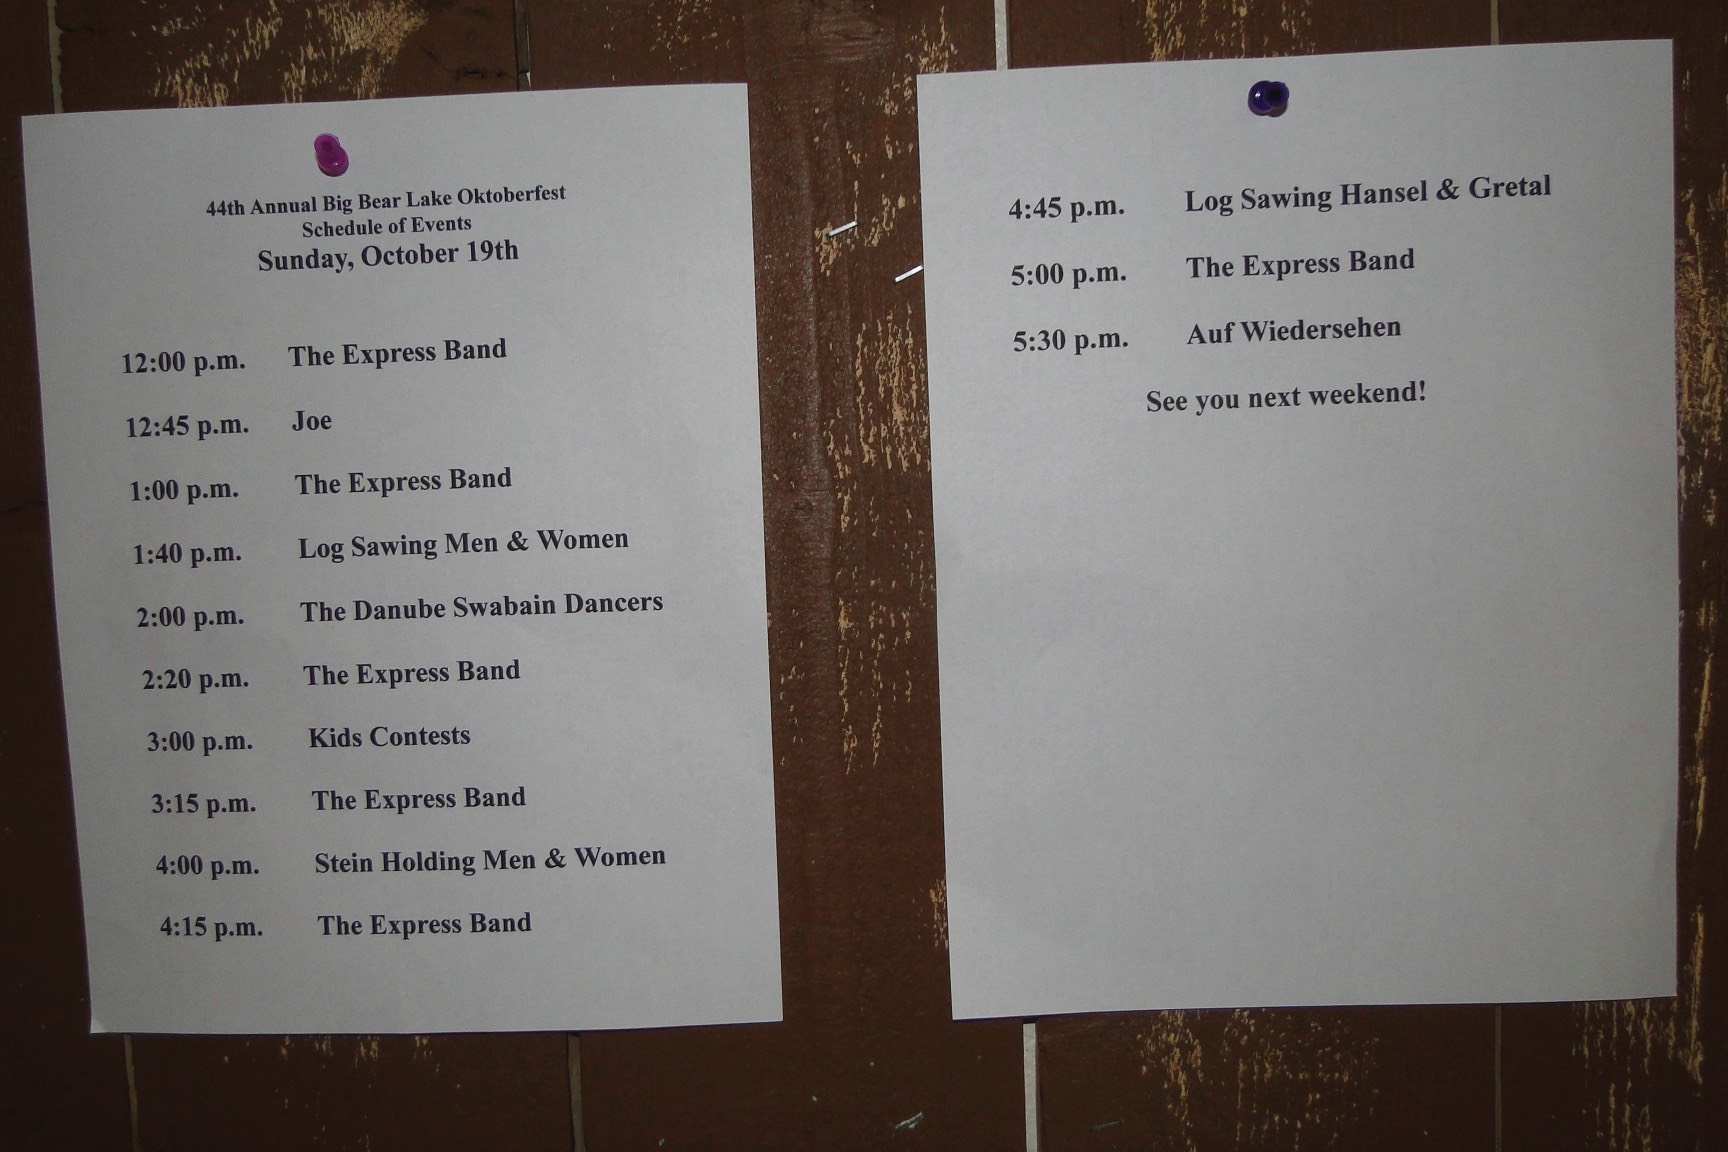 44th Annual Big Bear Lake Oktoberfest
Schedule of Events
Sunday, October 19th
12:00 p.m. The Express Band
12:45 p.m. Joe
1:00 p.m. The Express Band
1:40 p.m. Log Sawing Men & Women
2:00 p.m. The Danube Swabain Dancers
2:20 p.m. The Express Band
3:00 p.m. Kids Contests
3:15 p.m. The Express Band
4:00 p.m. Stein Holding Men & Women
4:15 p.m. The Express Band
4:45 p.m. Log Sawing Hansel & Gretal
5:00 p.m. The Express Band
5:30 p.m. Auf Wiedersehen
See you next weekend!